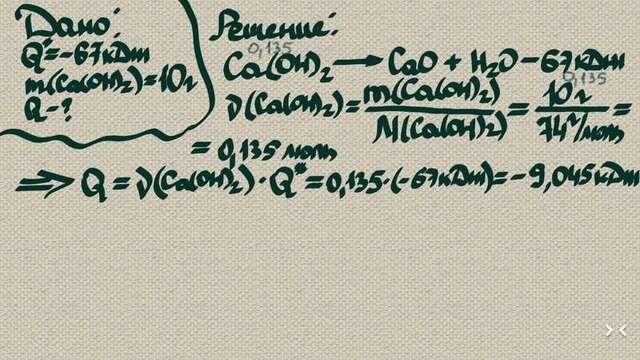 Дано:
Q*=-67кДж
m(Ca(OH)₂)=10г
Q-?
Решение:
0,135
Ca(OH)₂ → CaO + H₂O - 67кДж
0,135
ν(Ca(OH)₂) = m(Ca(OH)₂) / M(Ca(OH)₂) = 10г / 74г/моль =
= 0,135 моль
⇒ Q = ν(Ca(OH)₂) · Q* = 0,135·(-67кДж) = -9,045кДж